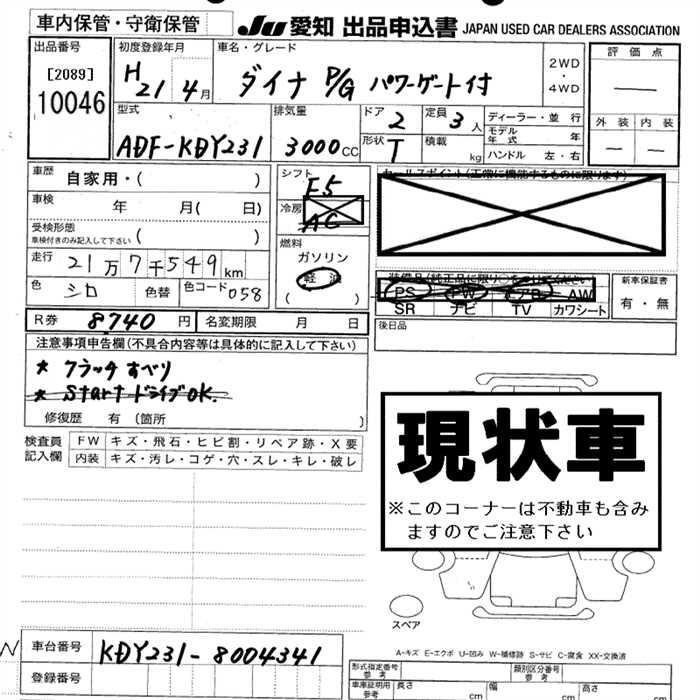 車内保管・守衛保管
JU 愛知 出品申込書 JAPAN USED CAR DEALERS ASSOCIATION
出品番号
[2089]
10046
初度登録年月
H21 4月
車名・グレード
ダイナ P/G パワーゲート付
2WD
・
4WD
評価点
外装 内装
型式
ADF-KDY231
排気量
3000CC
ドア 2
形状 T
定員 3人
積載 kg
ディーラー・並行
モデル年式 年
ハンドル 左・右
車歴 自家用・( )
車検 年 月( 日)
受検形態
車検付きのみ記入して下さい ( )
走行 21万7千549km
色 シロ 色替 色コード 058
シフト F5
冷房 AC
燃料
ガソリン
軽油
( )
セールスポイント(正常に機能するものに限ります)
PS PW AW
SR ナビ TV カワシート
新車保証書
有・無
R券 8740円 名変期限 月 日
後日品
注意事項申告欄(不具合内容等は具体的に記入して下さい)
* クラッチすべり
* Startドライブ OK.
修復歴 有 (箇所 )
検査員記入欄
FW キズ・飛石・ヒビ割・リペア跡・X要
内装 キズ・汚レ・コゲ・穴・スレ・キレ・破レ
現状車
※このコーナーは不動車も含み
ますのでご注意下さい
スペア
A-キズ E-エクボ U-凹み W-補修跡 S-サビ C-腐食 XX-交換済
車台番号 KDY231-8004341
登録番号
形式指定番号
参考
類別区分番号
参考
車庫証明用
参考
長さ cm
幅 cm
高さ cm